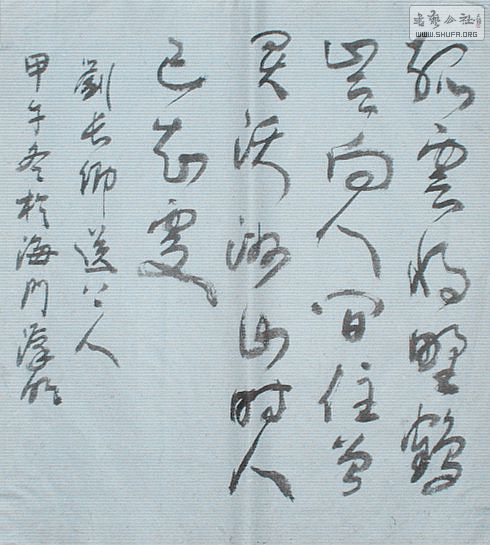 孤雲将野鶴
豈向人间住莫
買沃洲山時人
已知處
劉長卿送上人
甲午冬於海門
書藝公社
WWW.SHUFA.ORG